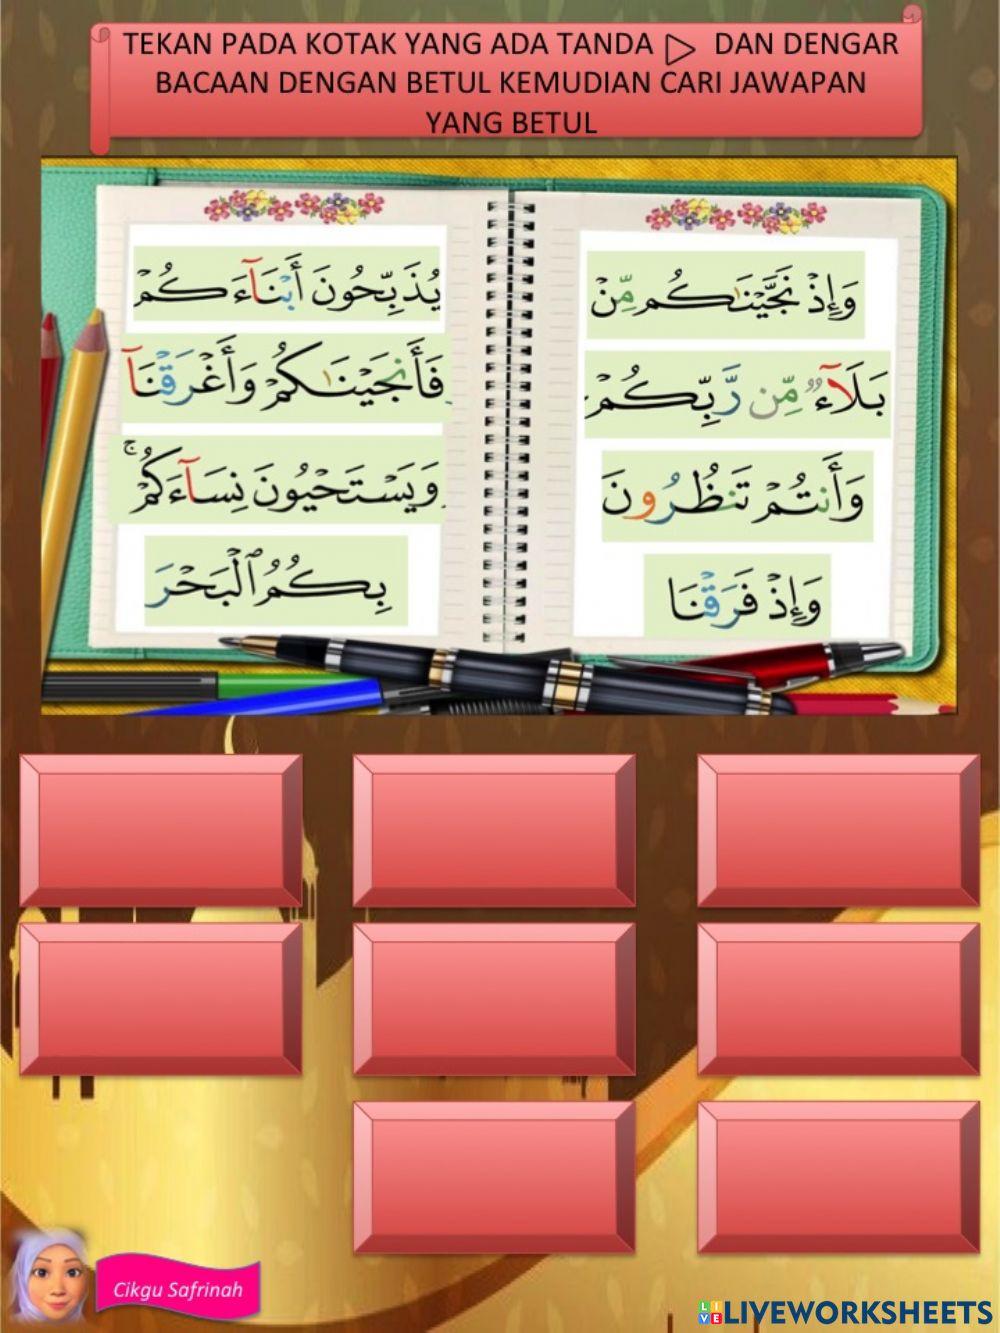 TEKAN PADA KOTAK YANG ADA TANDA ▷ DAN DENGAR
BACAAN DENGAN BETUL KEMUDIAN CARI JAWAPAN
YANG BETUL
وَإِذْ نَجَّيْنَـٰكُم مِّنْ
بَلَآءٌ مِّن رَّبِّكُمْ
وَأَنتُمْ تَنظُرُونَ
وَإِذْ فَرَقْنَا
يُذَبِّحُونَ أَبْنَآءَكُمْ
فَأَنجَيْنَـٰكُمْ وَأَغْرَقْنَآ
وَيَسْتَحْيُونَ نِسَآءَكُمْ ۚ
بِكُمُ ٱلْبَحْرَ
Cikgu Safrinah
LIVE LIVEWORKSHEETS